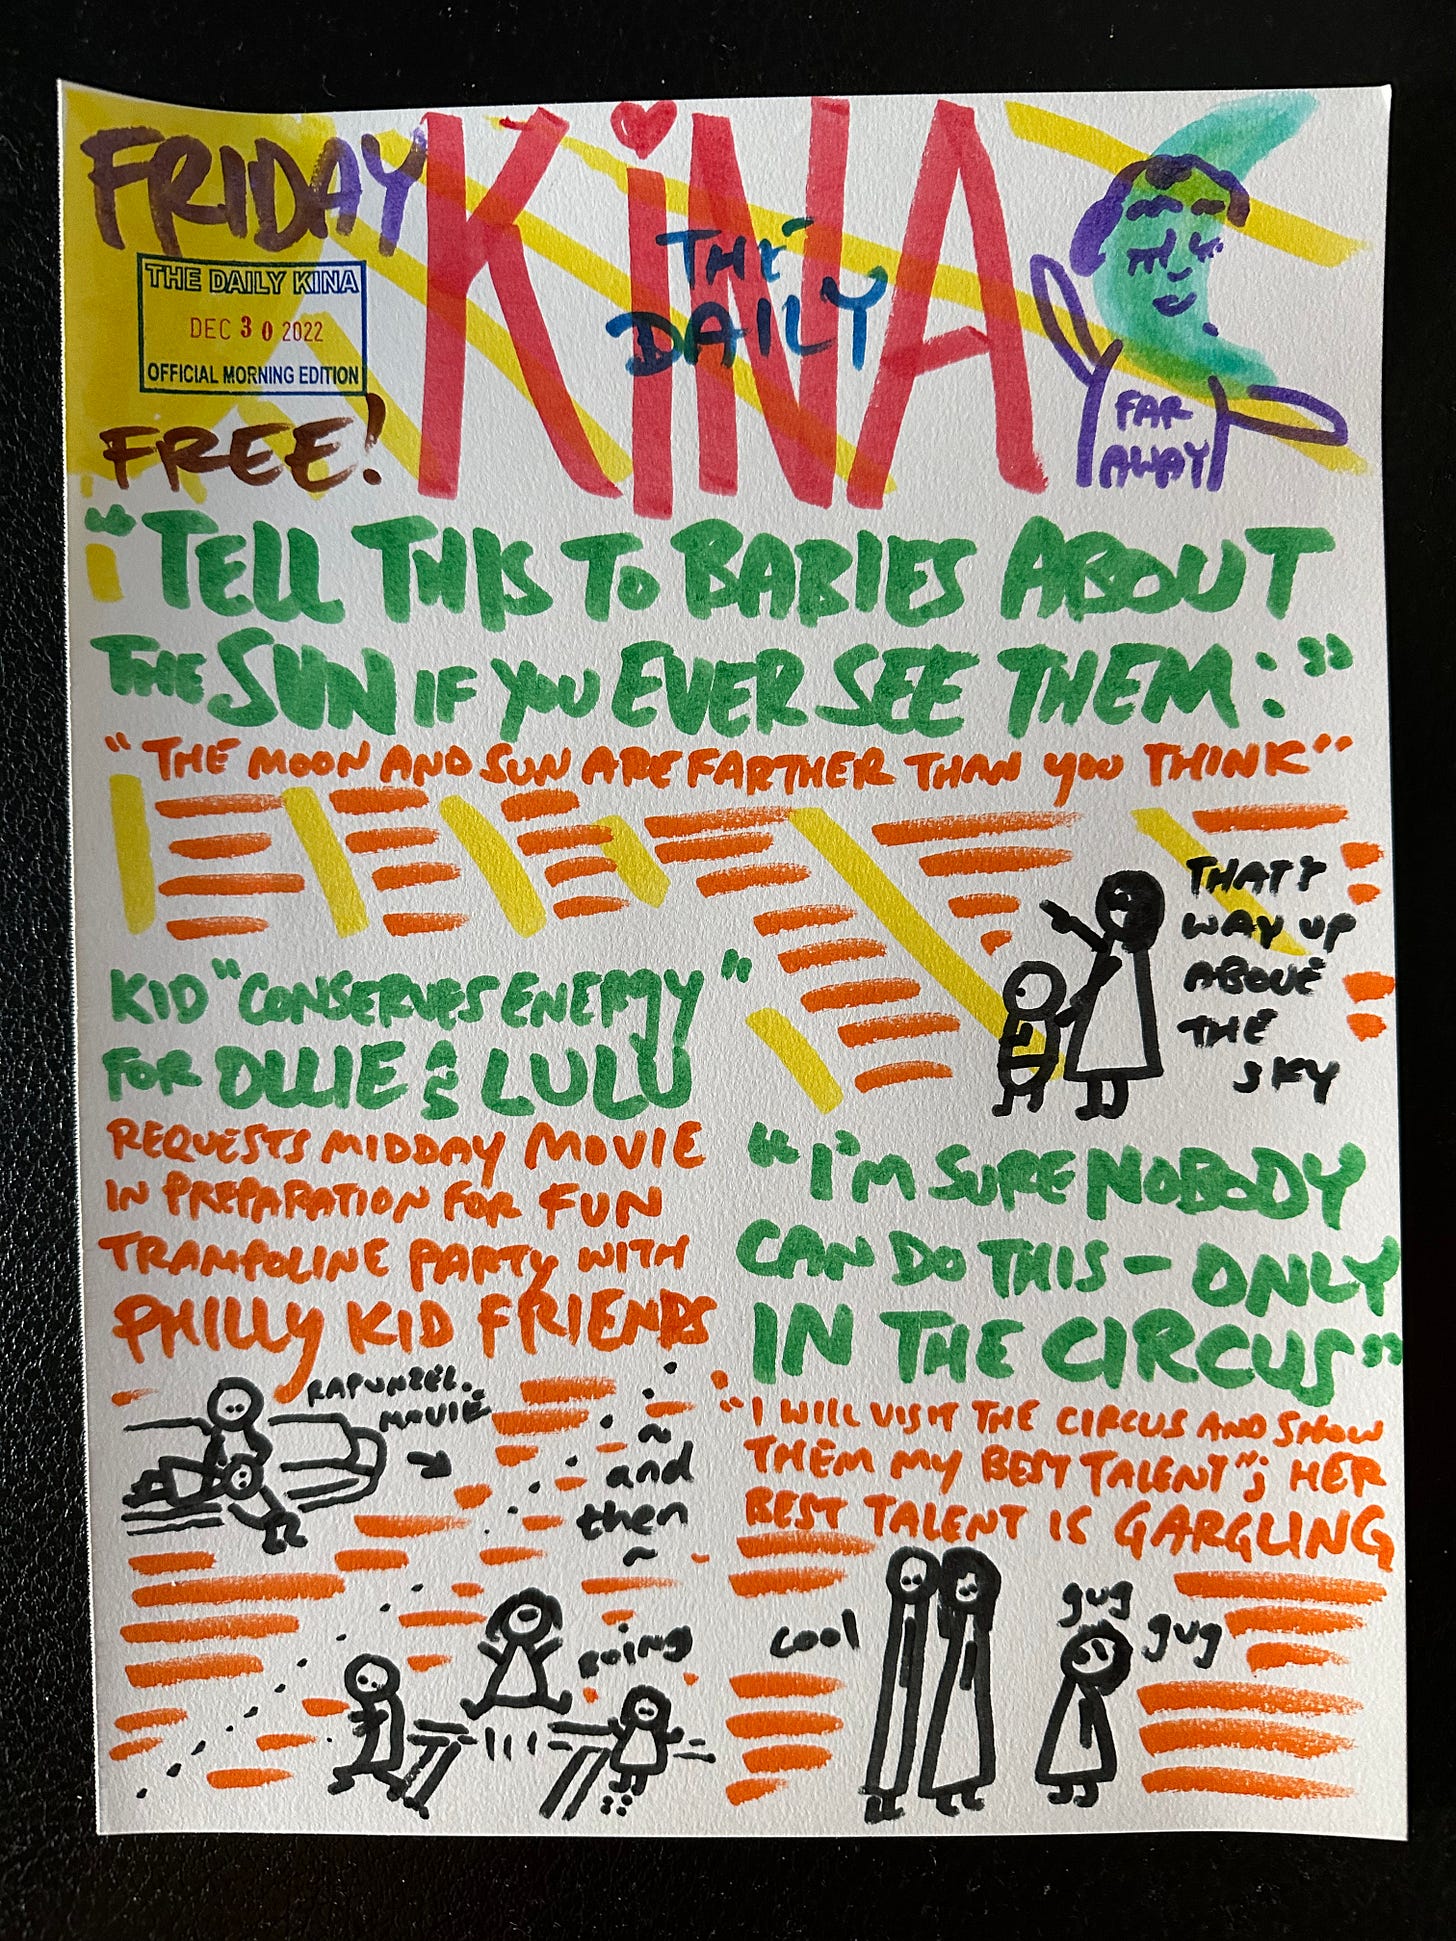 FRIDAY
THE DAILY KINA
DEC 30 2022
OFFICIAL MORNING EDITION
FREE!
KiNA
THE
DAILY
FAR
AWAY
"TELL THIS TO BABIES ABOUT
THE SUN IF YOU EVER SEE THEM:"
"THE MOON AND SUN ARE FARTHER THAN YOU THINK"
THAT'S
WAY UP
ABOVE
THE
SKY
KID "CONSERVES ENEMY"
FOR OLLIE & LULU
REQUESTS MIDDAY MOVIE
IN PREPARATION FOR FUN
TRAMPOLINE PARTY WITH
PHILLY KID FRIENDS
RAPUNZEL
MOVIE
~ and
then ~
BOING
"I'M SURE NOBODY
CAN DO THIS - ONLY
IN THE CIRCUS"
"I WILL VISIT THE CIRCUS AND SHOW
THEM MY BEST TALENT"; HER
BEST TALENT IS GARGLING
cool
gug
gug